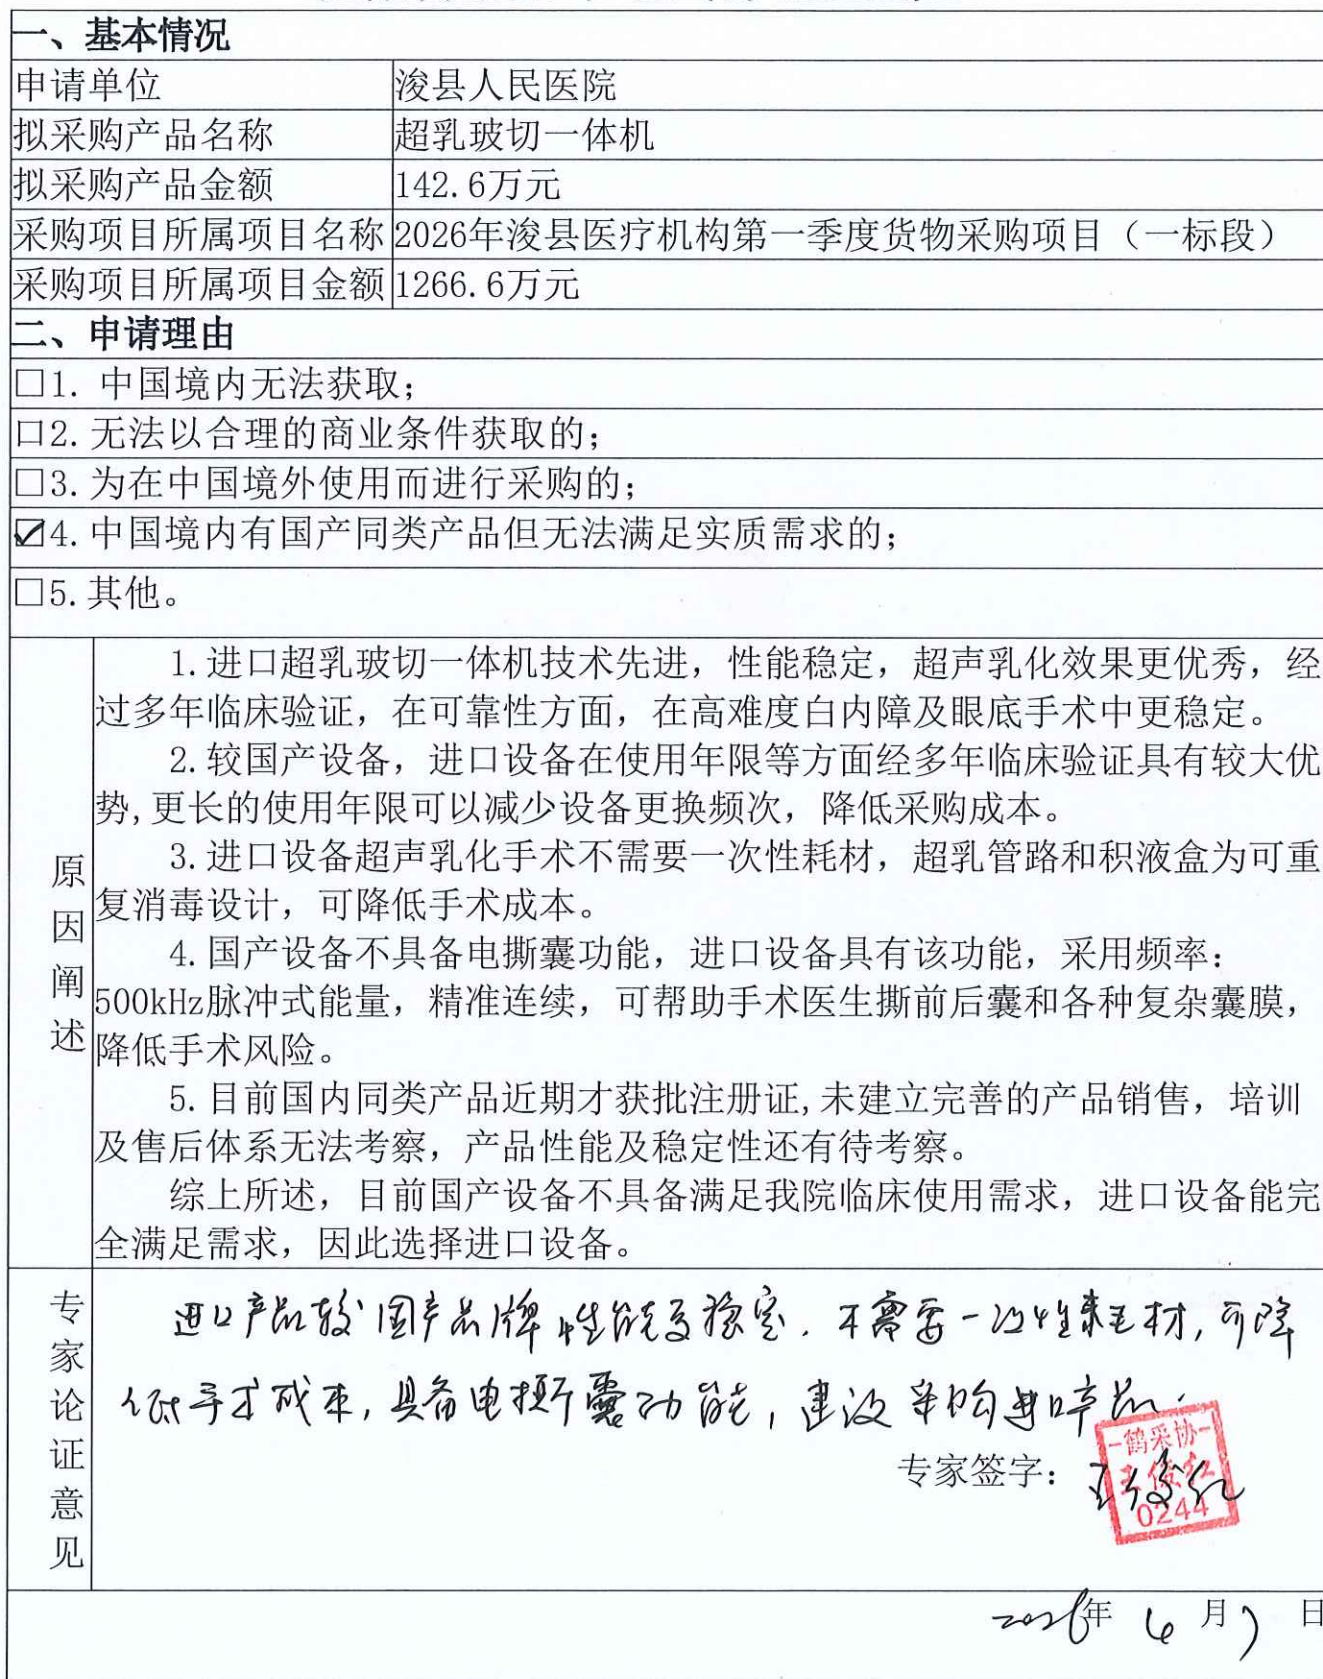 一、基本情况
申请单位 浚县人民医院
拟采购产品名称 超乳玻切一体机
拟采购产品金额 142.6万元
采购项目所属项目名称 2026年浚县医疗机构第一季度货物采购项目（一标段）
采购项目所属项目金额 1266.6万元
二、申请理由
□1. 中国境内无法获取；
口2.无法以合理的商业条件获取的；
□3.为在中国境外使用而进行采购的；
☑4.中国境内有国产同类产品但无法满足实质需求的；
□5.其他。
原因阐述
1.进口超乳玻切一体机技术先进，性能稳定，超声乳化效果更优秀，经
过多年临床验证，在可靠性方面，在高难度白内障及眼底手术中更稳定。
2.较国产设备，进口设备在使用年限等方面经多年临床验证具有较大优
势,更长的使用年限可以减少设备更换频次，降低采购成本。
3.进口设备超声乳化手术不需要一次性耗材，超乳管路和积液盒为可重
复消毒设计，可降低手术成本。
4.国产设备不具备电撕囊功能，进口设备具有该功能，采用频率：
500kHz脉冲式能量，精准连续，可帮助手术医生撕前后囊和各种复杂囊膜，
降低手术风险。
5.目前国内同类产品近期才获批注册证,未建立完善的产品销售，培训
及售后体系无法考察，产品性能及稳定性还有待考察。
综上所述，目前国产设备不具备满足我院临床使用需求，进口设备能完
全满足需求，因此选择进口设备。
专家论证意见
进口产品较国产品牌性能更稳定．不需要一次性耗材,可降
低手术成本,具备电撕囊功能,建议采购进口产品.
专家签字：王俊红
-鹤采协-
王俊红
0244
2026年 月 日